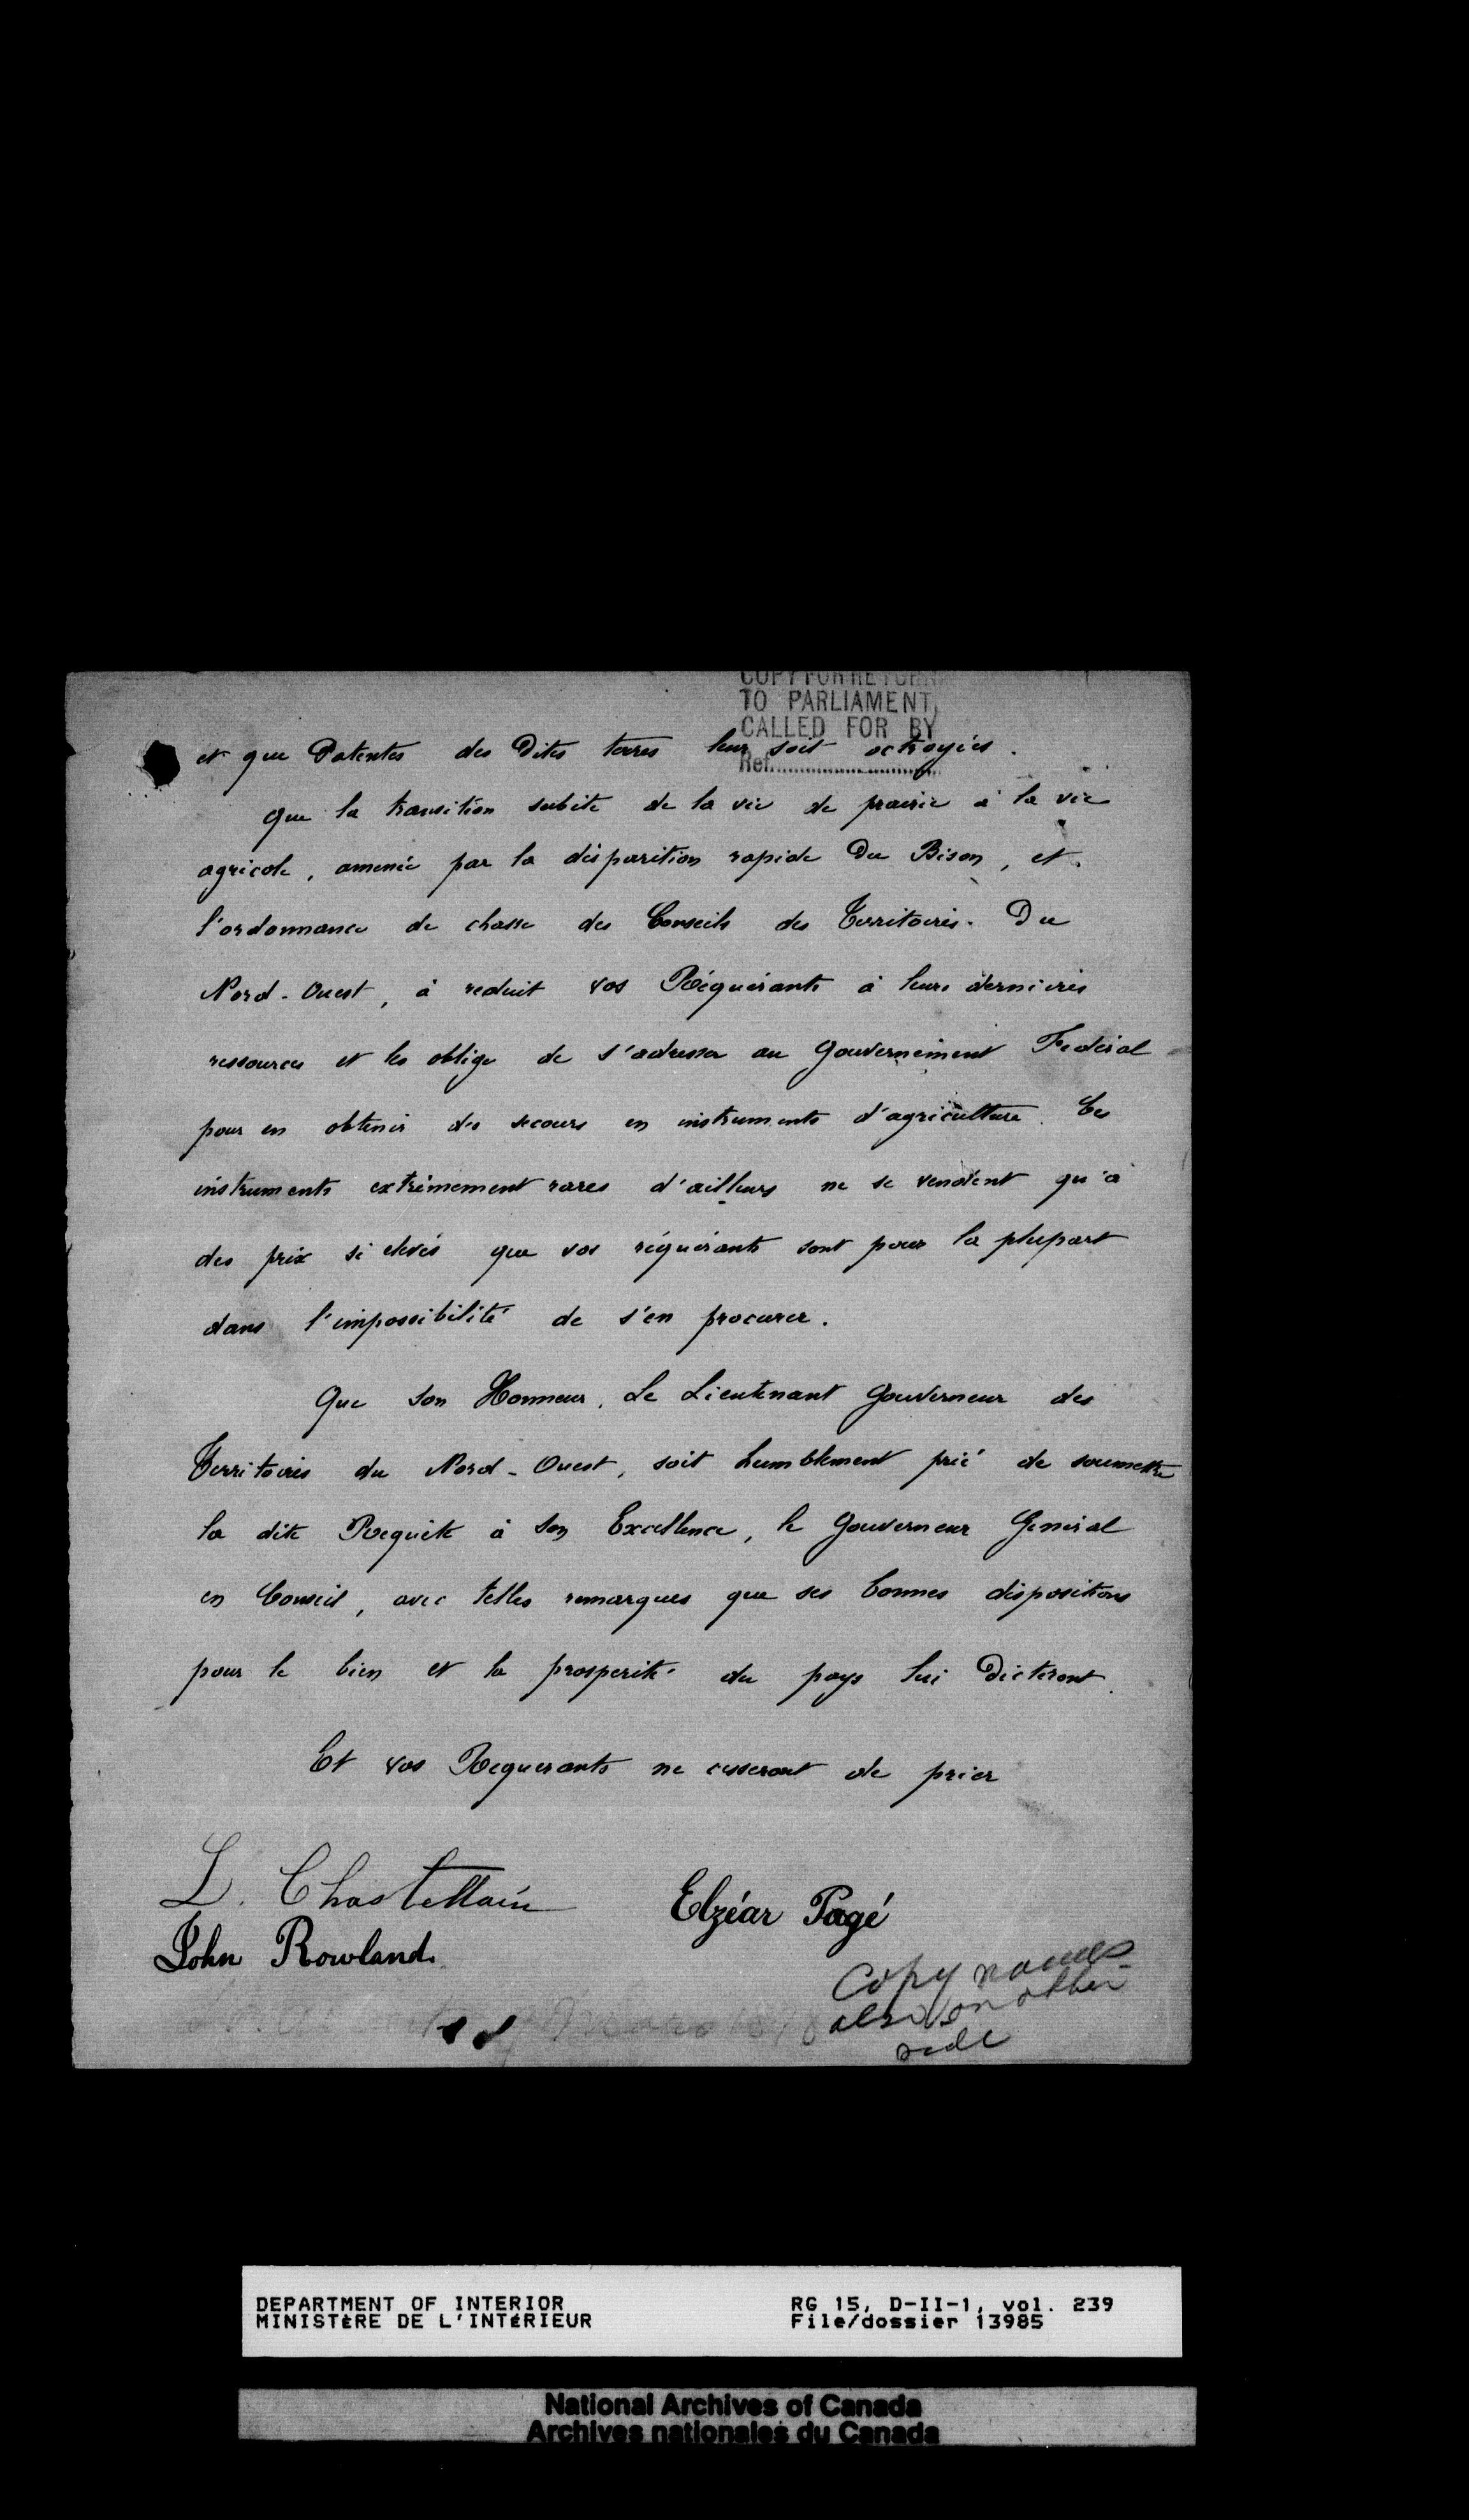 COPY FOR RETURN
TO PARLIAMENT
CALLED FOR BY
Ref
et que Patentes des Dites terres leur soit octroyées.
Que la transition subite de la vie de prairie à la vie
agricole, amenée par la disparition rapide Du Bison, et
l'ordonnance de chasse des Conseils des Territoires Du
Nord-Ouest, à reduit vos Réquérants à leurs dernières
ressources et les oblige de s'adresser au Gouvernement Fedéral
pour en obtenir des secours en instruments d'agriculture. Ces
instruments extrêmement rares d'ailleurs ne se vendent qu'à
des prix si elevés que vos réquérants sont pour la plupart
dans l'impossibilité de s'en procurer.
Que Son Honneur, Le Lieutenant Gouverneur des
Territoires du Nord-Ouest, soit humblement prié de soumettre
la dite Requête à Son Excellence, le Gouverneur Général
en Conseil, avec telles remarques que ses bonnes dispositions
pour le bien et la prosperité du pays lui Dicteront.
Et vos Requerants ne cesseront de prier
L. Chastellain
Elzéar Pagé
John Rowland.
Copy names
also on other
side
DEPARTMENT OF INTERIOR
MINISTÈRE DE L'INTÉRIEUR
RG 15, D-II-1, vol. 239
File/dossier 13985
National Archives of Canada
Archives nationales du Canada